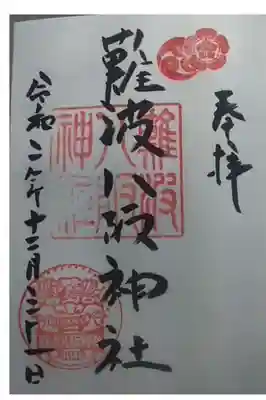 奉拝
難波八阪神社
令和二年十二月三十一日
難波
八阪
神社